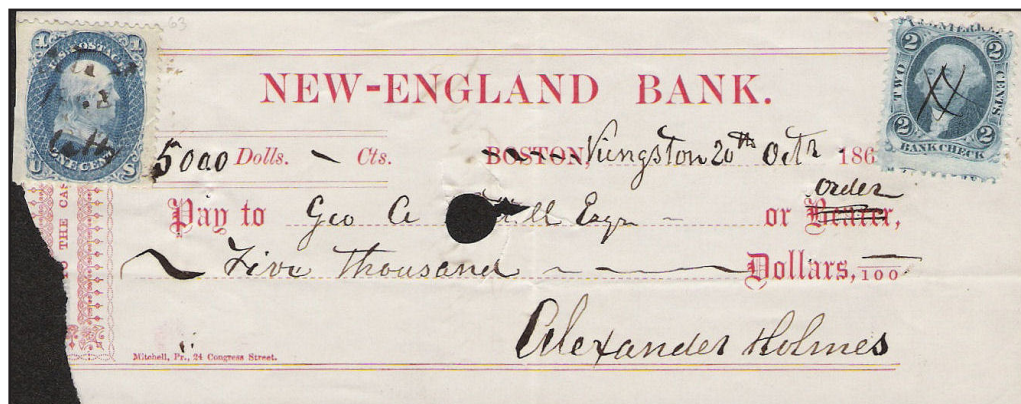 63
U.S. POSTAGE
ONE CENT
2 2
TWO CENTS
BANK CHECK
2 2
NEW-ENGLAND BANK.
5000 Dolls. Cts. BOSTON, Kingston 20th Octr 186
order
Pay to Geo A Esqr or Bearer,
Five thousand Dollars, 100
TO THE CAS
Alexander Holmes
Mitchell, Pr., 24 Congress Street.